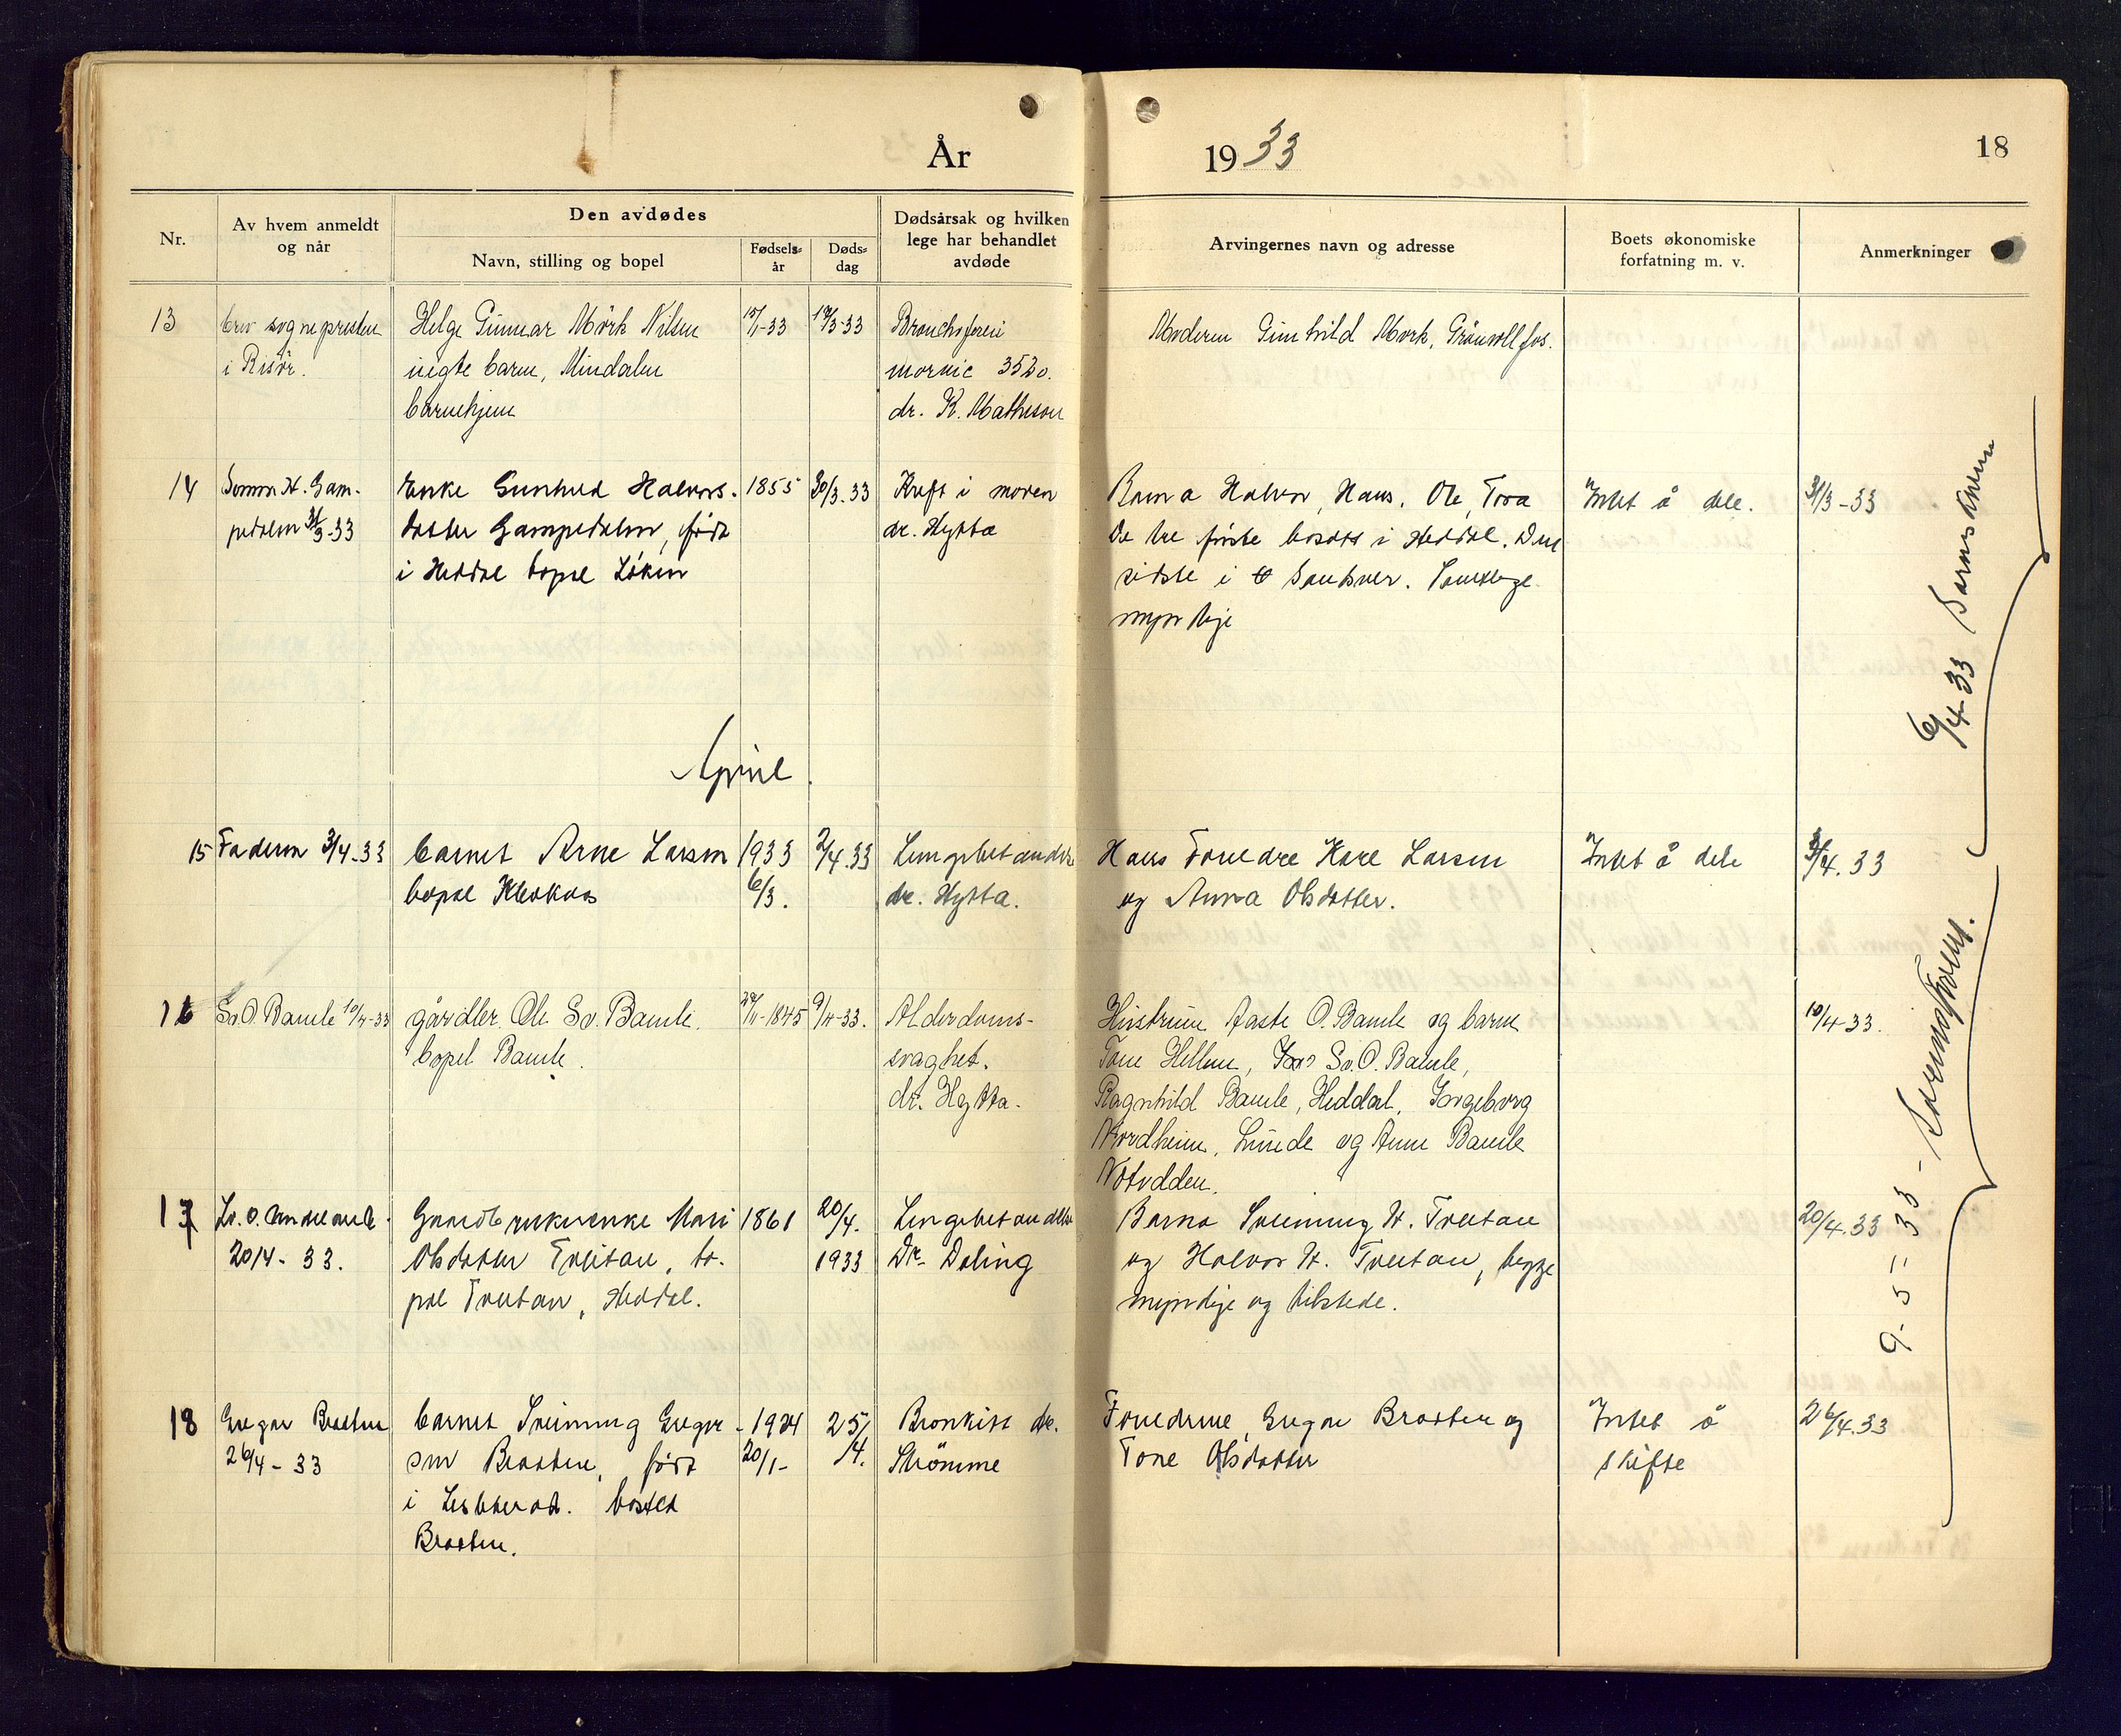 År
1933
18
Nr.
Av hvem anmeldt
og når
Den avdødes
Navn, stilling og bopel
Fødsels-
år
Døds-
dag
Dødsårsak og hvilken
lege har behandlet
avdøde
Arvingernes navn og adresse
Boets økonomiske
forfatning m. v.
Anmerkninger
13
sognepresten
i Risør.
Helge Gunnar Mörk Nilsen
uegte barn, Mindalen
barnehjem
15/1-33
3-33
3520.
dr. K. Mathisen
Moderen Gunhild Mork, Grönvollfos.
14
Sønnen H. Gam-
pedalen 31/3-33
Enke Gunhild Halvors-
datter Gampedalen, født
i Heddal bopel Løken
1855
30/3-33
Kreft i maven
dr. Hytta
Barna Halvor, Hans, Ole, Tora
De tre første bosatt i Heddal. Den
sidste i Sandsver. Samtlige
myndige
Intet å dele.
31/3-33
6/4-33 Sorenskriveren
April
15
Faderen 3/4-33
barnet Arne Larsen
bopel
1933
6/3.
2/4.33
Lungebetændelse
dr. Hytta.
Hans Foreldre Kare Larsen
og Anna Olsdatter.
Intet å dele
3/4.33
16
Sv.O. Bamle 10/4-33
Ole Sv. Bamle.
bopel Bamle.
29/11-1845
9/4-33.
Alderdoms-
svaghet.
dr. Hytta.
Hustruen Aaste O. Bamle og barn
Tone Hellem, Sv.O. Bamle,
Ragnhild Bamle, Heddal, Ingeborg
Nordheim, Lunde og Anne Bamle
Notodden.
10/4-33.
17
20/4-33.
Gaardbrukerenke Mari
Olsdatter Tveitan, bo-
pel Tveitan, Heddal.
1861
20/4.
1933
Lungebetændelse
Dr. Doling
Barna Sveinung H. Tveitan
og Halvor H. Tveitan, begge
myndige og tilstede.
20/4.33
9-5-33 - Sorenskriveren.
18
Gregar Braaten
26/4-33
barnet Sveinung Gregar-
sen Braaten, født
i bosted
Braaten.
20/1-
25/4.
Bronkitt dr.
Strömme
Foreldrene, Gregar Braaten og
Tone Olsdatter
Intet å
skifte
26/4.33